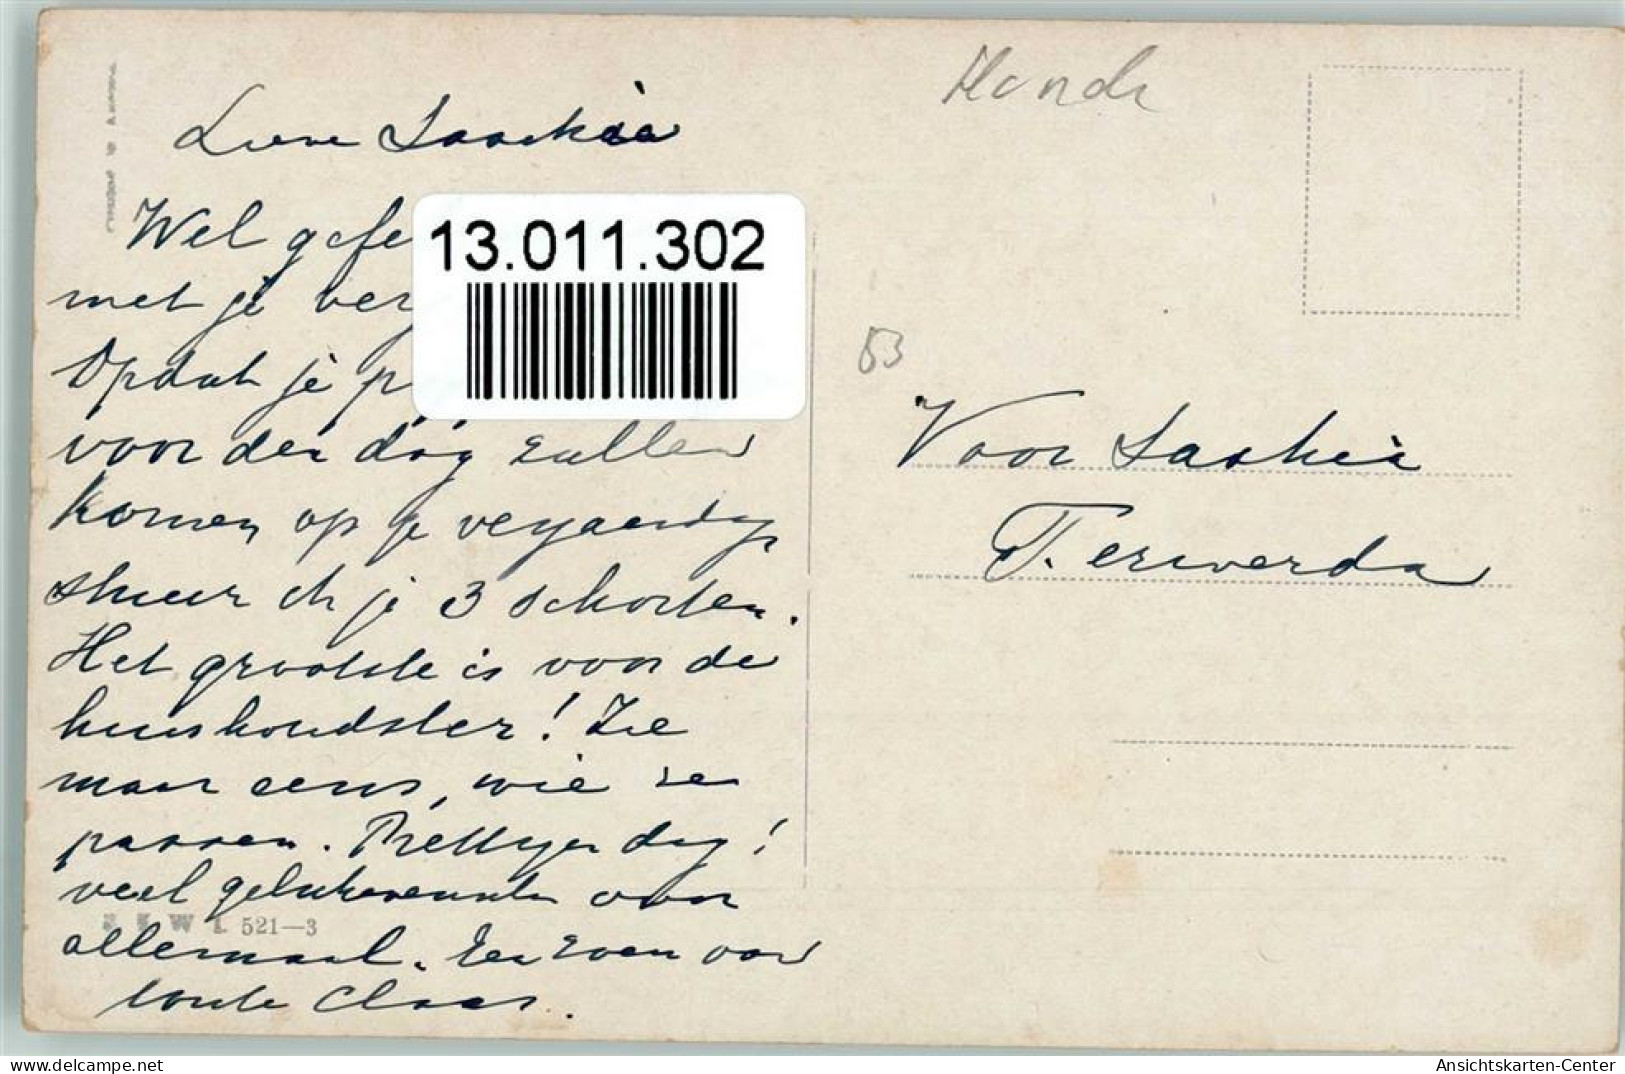 Lieve Saskia
Wel gefe
met je ver
Opdat je p
voor den dag zullen
komen op je verjaardag
stuur ik je 3 schorten.
Het grootste is voor de
huishoudster! Zie
maar eens, wie ze
passen. Prettige dag!
veel gelukwensen voor
allemaal. Een zoen van
tante Claar.
13.011.302
S & W 521—3
Hunde
53
Voor Saskia
Terwerda
Ansichtskarten-Center